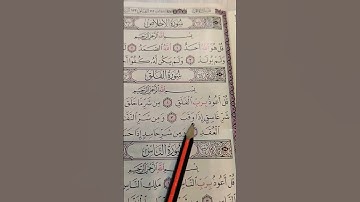 سُورَةُ الإِخْلَاصِ
بِسْمِ اللَّهِ الرَّحْمَٰنِ الرَّحِيمِ
قُلْ هُوَ اللَّهُ أَحَدٌ ١ اللَّهُ الصَّمَدُ ٢
وَلَمْ يُولَدْ ٣ وَلَمْ يَكُن لَّهُ كُفُوًا
سُورَةُ الْفَلَقِ
بِسْمِ اللَّهِ الرَّحْمَٰنِ الرَّحِيمِ
قُلْ أَعُوذُ بِرَبِّ الْفَلَقِ ١ مِن شَرِّ مَا خَلَقَ
شَرِّ غَاسِقٍ إِذَا وَقَبَ ٣ وَمِن شَرِّ
الْعُقَدِ ٤ وَمِن شَرِّ حَاسِدٍ إِذَا
سُورَةُ النَّاسِ
بِسْمِ اللَّهِ الرَّحْمَٰنِ الرَّحِيمِ
قُلْ أَعُوذُ بِرَبِّ النَّاسِ ١ مَلِكِ النَّاسِ